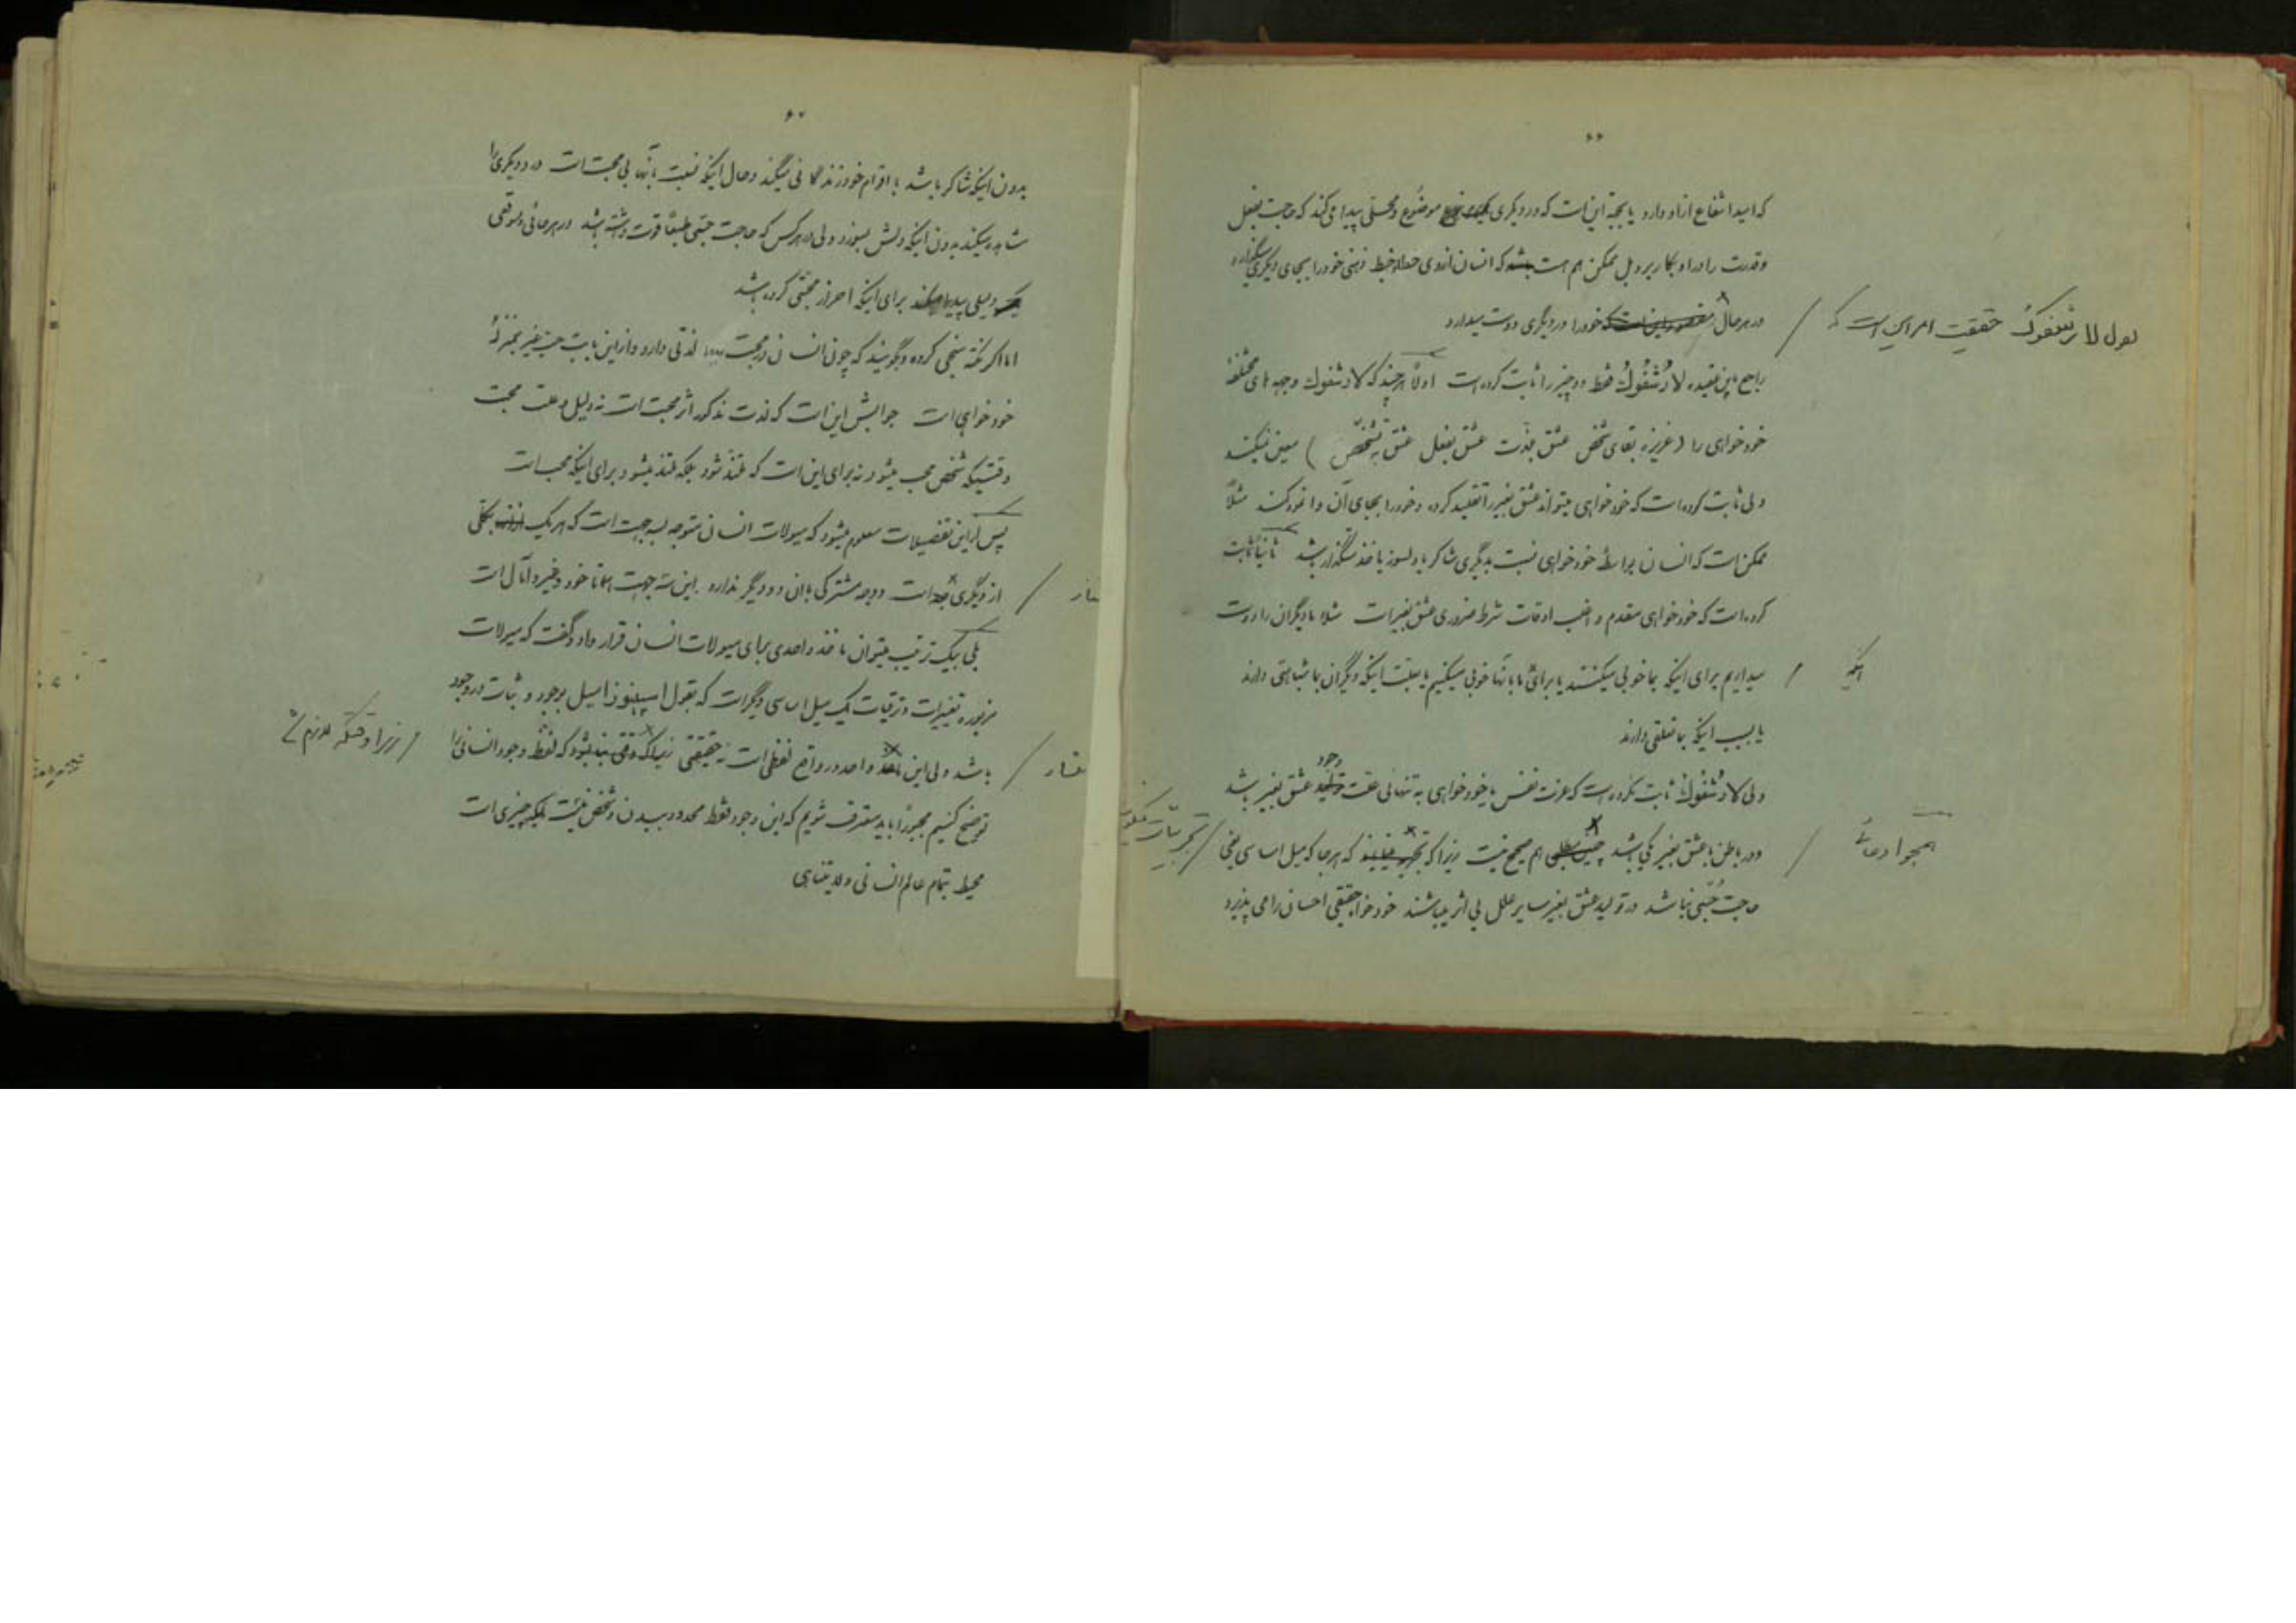 ۶۶
که امید انتفاع از او دارد یا بجهة این است که در دیگری موضوع و محلی پیدا می کند که حاجت بفعل
و قدرت را در او بکار برد بل ممکن هم هست که انسان از روی خبط ذهنی خود را بجای دیگری بگذارد
در هر حال خود را در دیگری دوست میدارد
بقول لارشفوکُ حقیقت امر این است که
راجع باین عقیده لارُشفُوکُ فقط دو چیز را ثابت کرده است اولاً هر چند که لارشفوک وجهه های مختلفهٔ
خودخواهی را (غریزه بقای شخص عشق بقدرت عشق بفعل عشق به تشخّص) معین نمیکند
ولی ثابت کرده است که خودخواهی میتواند عشق بغیر را تقلید کرده و خود را بجای آن وانمود کند مثلاً
ممکن است که انسان بواسطهٔ خودخواهی نسبت بدیگری شاکر یا دلسوز یا خدمتگذار باشد ثانیاً ثابت
کرده است که خودخواهی مقدم و اغلب اوقات شرط ضروری عشق بغیر است مثلا ما دیگران را دوست
میداریم برای اینکه بما خوبی میکنند یا برای اینکه ما بآنها خوبی میکنیم یا بعلت اینکه دیگران بما شباهتی دارند
یا بسبب اینکه بما تعلقی دارند
ولی لارُشفُوکُ ثابت نکرده است که عزت نفس یا خودخواهی به تنهائی علت وجود عشق بغیر باشد
و در باطن با عشق بغیر یکی باشد همچو ادعائی هم صحیح نیست زیرا که تجربیات که هر جا که میل اساسی یعنی
حاجت حُبّی نباشد در تولید عشق بغیر سایر علل بی اثر میباشند خودخواه حقیقی احسان را می پذیرد
۶۷
بدون اینکه شاکر باشد با اقوام خود زندگانی میکند و حال اینکه نسبت بآنها بی محبت است درد دیگری را
مشاهده میکند بدون اینکه دلش بسوزد ولی در هر کس که حاجت حبّی طبعاً قوت داشته باشد در هر جائی و موقعی
دلیلی پیدا میکند برای اینکه احراز محبتی کرده باشد
اما اگر نکته سنجی کرده و بگویند که چون انسان در محبت لذتی دارد و از این بابت حب غیر بمنزلهٔ
خودخواهی است جوابش این است که لذت مذکور اثر محبت است نه دلیل و علت محبت
وقتیکه شخص محب میشود نه برای این است که متلذذ شود بلکه متلذذ میشود برای اینکه محب است
پس از این تفصیلات معلوم میشود که میولات انسان متوجه بسه جهت است که هر یک بکلی
از دیگری است و وجه مشترکی با آن دو دیگر ندارد این سه جهت همانا خود و غیر و آمال است
بلی بیک ترتیب میتوان مأخذ واحدی برای میولات انسان قرار داد و گفت که میولات
مزبوره تغییرات و ترقیات یک میل اساسی دیگر است که بقول اسپینوزا میل بوجود و ثبات در وجود
باشد ولی این واحد در واقع لفظی است نه حقیقی زیرا وقتیکه لازم که لفظ وجود انسانی را
توضیح کنیم مجبوراً باید معترف شویم که این وجود فقط محدود ببدن و شخص نیست بلکه چیزی است
محیط بتمام عالم انسانی و لایتناهی